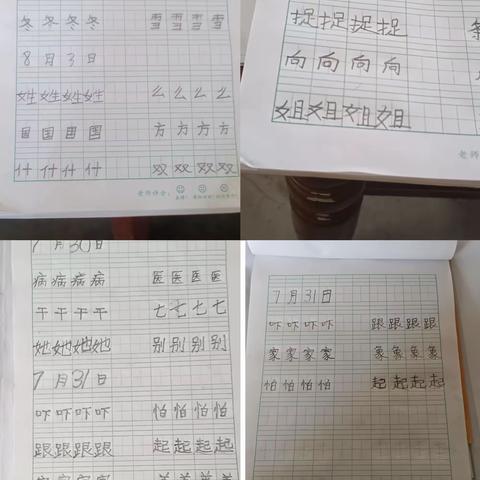 冬 冬 冬 冬 雪 雪 雪 雪
8 月 3 日
姓 姓 姓 姓 么 么 么 么
国 国 国 国 方 方 方 方
什 什 什 什 双 双 双 双
老师评价:
捉 捉 捉 捉
向 向 向 向
姐 姐 姐 姐
老师
7 月 30 日
病 病 病 病 医 医 医 医
干 干 干 干 七 七 七 七
她 她 她 她 别 别 别 别
7 月 31 日
吓 吓 吓 吓 怕 怕 怕 怕
跟 跟 跟 跟 起 起 起 起
家 家 家 家
7 月 31 日
吓 吓 吓 吓 跟 跟 跟 跟
家 家 家 家 象 象 象 象
怕 怕 怕 怕 起 起 起 起